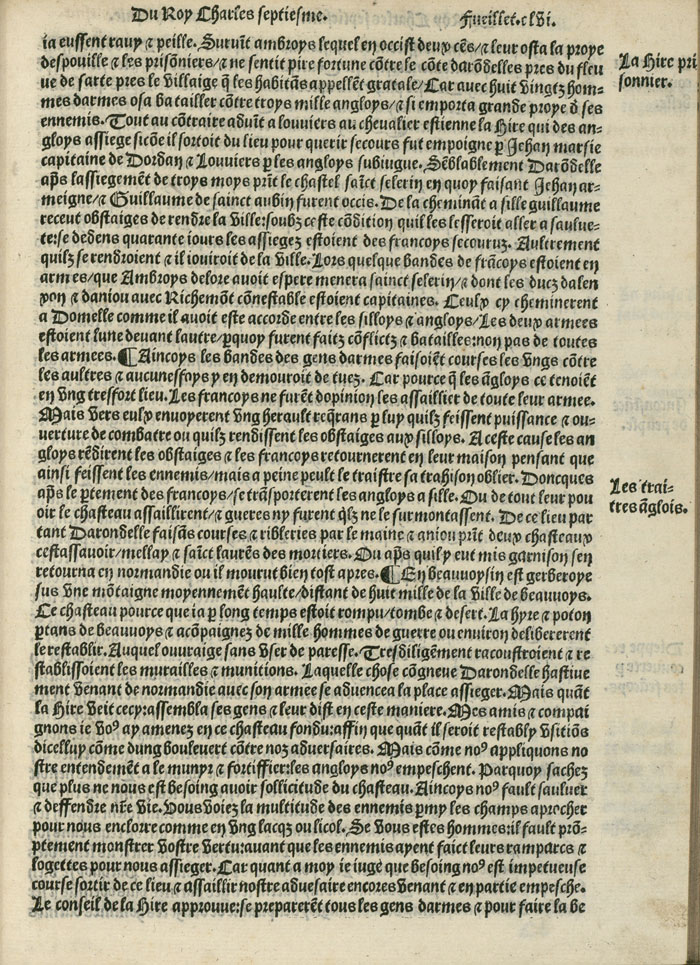 Du Roy Charles septiesme.
Fueillet. clvi.
ia eussent rauy ⁊ peille. Suruīt ambroys lequel en occist deux cēs/⁊ leur osta la proye
despouille ⁊ les prisōniers/⁊ ne sentit pire fortune cōtre le cōte darōdelles pres du fleu
ue de sarte pres le villaige q̄ les habitās appellēt gratale/Car auec huit vingtz hom-
mes darmes osa batailler cōtre troys mille angloys/⁊ si emporta grande proye d̄ ses
ennemis. Tout au cōtraire aduīt a louuiers au cheualier estienne la Hire qui des an-
gloys assiege sicōe il sortoit du lieu pour querir secours fut empoigne ꝑ Jehan marsie
capitaine de Dordan ⁊ Louuiers ꝑ les angloys subiugue. Sēblablement Darōdelle
ap̄s lassiegemēt de troys moys prīt le chastel saīct selerin en quoy faisant Jehan ar-
meigne/⁊ Guillaume de sainct aubin furent occis. De la chemināt a sille guillaume
receut obstaiges de rendre la ville: soubz ceste cōdition quil les lesseroit aller a sauluе-
te: se dedens quarante iours les assiegez estoient des francoys secouruz. Aultrement
quilz se rendroient ⁊ il iouiroit de la ville. Lors quelque bandes de frācoys estoient en
armes/que Ambroys delore auoit espere menera sainct selerin/⁊ dont les ducz dalen
xon ⁊ daniou auec Richemōt cōnestable estoient capitaines. Ceulx cy cheminerent
a Domelle comme il auoit este accorde entre les silloys ⁊ angloys/Les deux armees
estoient lune deuant lautre/ꝑquoy furent faitz cōflictz ⁊ batailles: non pas de toutes
les armees. ¶Aincoys les bandes des gens darmes faisoiēt courses les vngs cōtre
les aultres ⁊ aucunesfoys y en demouroit de tuez. Car pource q̄ les āgloys ce tenoiēt
en vng tresfort lieu. Les francoys ne furēt dopinion les assaillier de toute leur armee.
Mais vers eulx enuoyerent vng herault req̄rans ꝑ luy quilz feissent puissance ⁊ ou-
uerture de combatre ou quilz rendissent les obstaiges aux silloys. A ceste cause les an
gloys rēdirent les obstaiges ⁊ les francoys retournerent en leur maison pensant que
ainsi feissent les ennemis/mais a peine peult le traistre sa trahison oblier. Doncques
ap̄s le ꝑtement des francoys/se trāsporterent les angloys a sille. Ou de tout leur pou
oir le chasteau assaillirent/⁊ gueres ny furent q̄lz ne le surmontassent. De ce lieu par
tant Darondelle faisās courses ⁊ ribleries par le maine ⁊ aniou prīt deux chasteaux
cestassauoir/mellay ⁊ saīct laurēs des mortiers. Ou ap̄s quil y eut mis garnison sen
retourna en normandie ou il mourut bien tost apres. ¶En beauuoysin est gerberoye
sus vne mōtaigne moyennemēt haulte/distant de huit mille de la ville de beauuoys.
Ce chasteau pource que ia ꝑ long temps estoit rompu/tombe ⁊ desert. La hyre ⁊ poton
ꝑtans de beauuoys ⁊ acōpaignez de mille hommes de guerre ou enuiron delibererent
le restablir. Auquel ouuraige sans vser de paresse. Tresdiligēmēt racoustroient ⁊ re
stablissoient les murailles ⁊ munitions. Laquelle chose cōgneue Darondelle hastiue
ment venant de normandie auec son armee se aduencea la place assieger. Mais quāt
la Hire veit cecy: assembla ses gens ⁊ leur dist en ceste maniere. Mes amis ⁊ compai
gnons ie voꝰ ay amenez en ce chasteau fondu: affin que quāt il seroit restably vsitiōs
dicelluy cōme dung bouleuert cōtre noz aduersaires. Mais cōme noꝰ appliquons no
stre entendemēt a le munyr ⁊ fortiffier: les angloys noꝰ empeschent. Parquoy sachez
que plus ne nous est besoing auoir sollicitude du chasteau. Aincoys noꝰ fault sauluer
⁊ deffendre nr̄e vie. Vous voiez la multitude des ennemis ꝑmy les champs aprocher
pour nous enclorre comme en vng lacqz ou licol. Se vous estes hommes: il fault prō-
ptement monstrer vostre vertu: auant que les ennemis ayent faict leurs ramparcz ⁊
logettes pour nous assieger. Car quant a moy ie iuge que besoing noꝰ est impetueuse
course sortir de ce lieu ⁊ assaillir nostre aduesaire encores venant ⁊ en partie empesche.
Le conseil de la Hire approuue: se preparerēt tous les gens darmes ⁊ pour faire la be
La Hire pri
sonnier.
Les trai-
tres āglois.